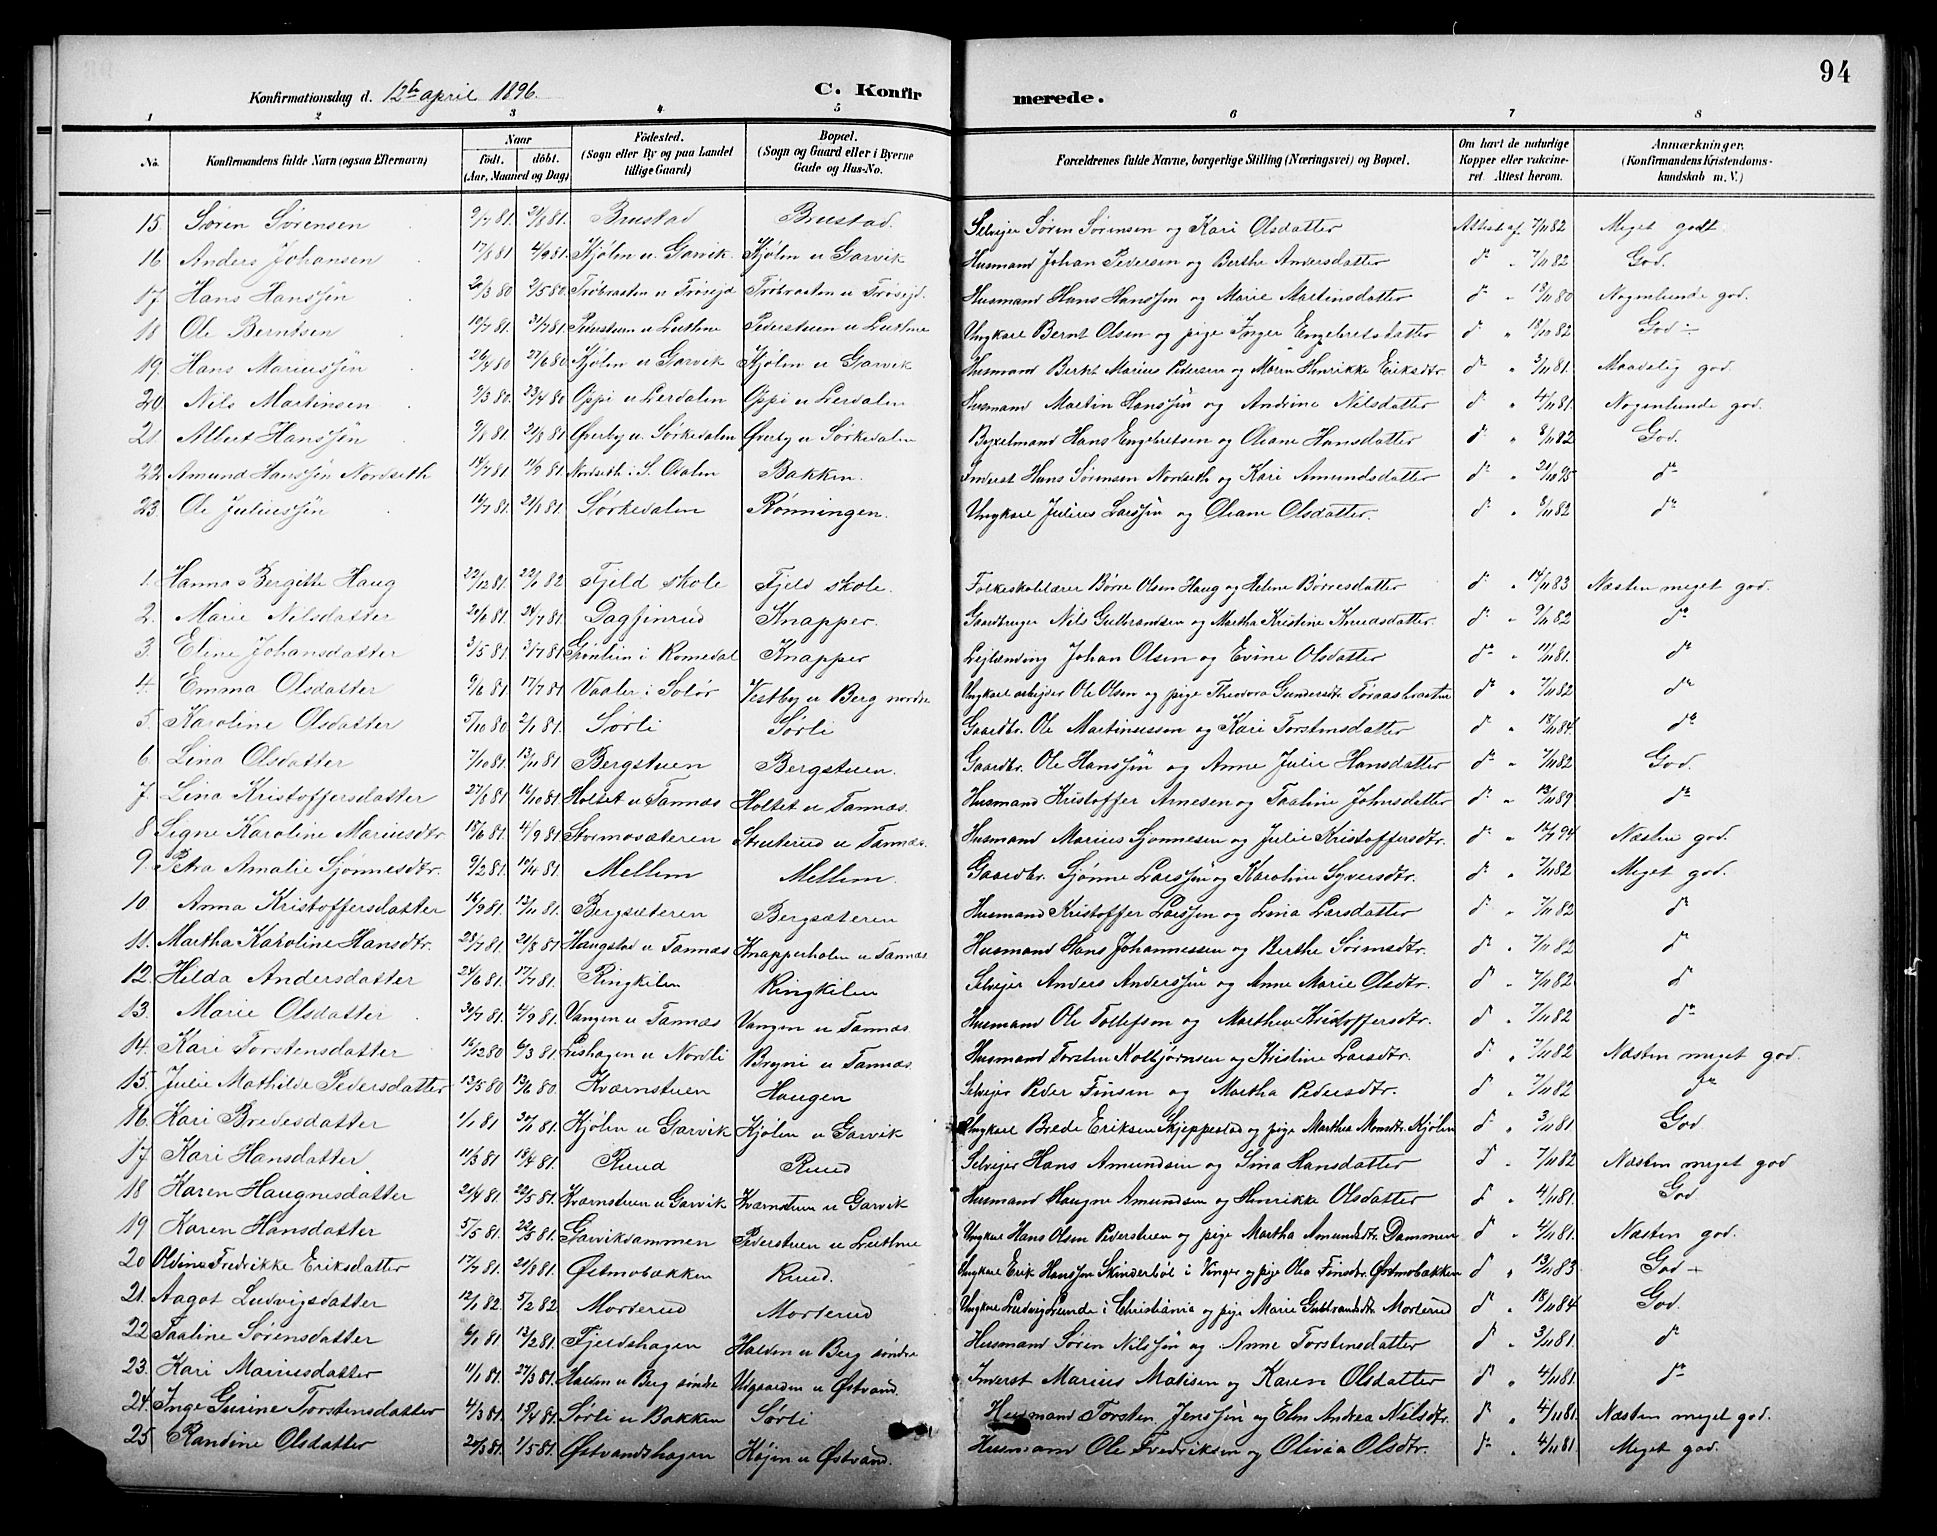 94
Konfirmationsdag d. 12te april 1896. C. Konfirmerede.
1 2 3 4 5 6 7 8
No. Konfirmandens fulde Navn (ogsaa Efternavn) Naar födt. döbt. (Aar, Maaned og Dag) Födested. (Sogn eller By og paa Landet tillige Gaard) Bopæl. (Sogn og Gaard eller i Byerne Gade og Hus-No. Forældrenes fulde Navne, borgerlige Stilling (Næringsvei) og Bopæl. Om havt de naturlige Kopper eller vakcineret. Attest herom. Anmærkninger. (Konfirmandens Kristendomskundskab m. V.)
15 Søren Sørensen 9/7 81. 21/8 81. Brustad Brustad. Selvejer Søren Sørensen og Kari Olsdatter Attest af 7/11 82 Meget godt.
16 Anders Johansen 17/8 81 4/9 81. Kjølen u Garvik. Kjølen u Garvik Husmand Johan Pedersen og Berthe Andersdatter do " 7/11 82 God.
17 Hans Hanssøn 20/3 80 2/5 80. Husmand Hans Hanssøn og Marie Martinsdatter do " 13/11 80 Nogenlunde god.
18 Ole Berntsen 19/7 81. 31/7 81. Pederstuen u Luthne Pederstuen u Luthne Ungkarl Bernt Olsen og pige Inger Engebretsdatter do " 18/11 82 God
19 Hans Mariussøn 26/4 80 27/6 80. Kjølen u Garvik Kjølen u Garvik Husmand Berht Marius Pedersen og Maren Henrikke Eriksdtr. do " 3/11 81. Maadelig god.
20 Nils Martinsen 9/3 80. 23/4 80 Oppi u Lerdalen Oppi u Lerdalen Husmand Martin Hanssøn og Andrine Nilsdatter do " 4/11 81. Nogenlunde god.
21. Albert Hanssøn 9/8 81. 21/8 81. Øverby u. Sørkedalen Øverby u Sørkedalen Byxelmand Hans Engebretsen og Oleane Hansdatter do " 8/11 82 God.
22 Amund Hanssøn Nordseth 14/7 81. 11/9 81. Nordseth i S. Odalen Bakken. Inderst Hans Sørensen Nordseth og Kari Amundsdatter do " 21/10 95 do
23. Ole Juliussøn 14/7 81. 21/8 81. Sørkedalen Rønningen. Ungkarl Julius Larssøn og Oleane Olsdatter. do " 8/11 82 do
1. Hanna Bergitte Haug 22/12 81. 22/1 82 Fjeld skole Fjeld skole. Folkeskolelærer Børre Olsen Haug og Helene Børresdatter do " 14/11 83 Næsten meget god.
2. Marie Nilsdatter 20/6 81. 24/7 81. Dagfinrud Knapper. Gaardbruger Nils Gulbrandsen og Martha Kristine Knudsdatter. do " 9/11 82 do
3. Eline Johansdatter 3/5 81. 3/7 81. Grønlien i Romedal Knapper Lejlænding Johan Olsen og Evine Olsdatter do " 11/11 81. do
4. Emma Olsdatter 9/6 81. 17/7 81. Vaaler i Solør Vestby u Berg nordre Ungkarl arbejder Ole Olsen og pige Theodora Gundersdtr. do " 7/11 82 do
5. Karoline Olsdatter 5/10 80 2/1 81. Sørli Sørli Gaardbr. Ole Martinussen og Kari Torstensdatter do " 18/11 84. do
6. Lina Olsdatter 7/10 81. 13/11 81 Bergstuen Bergstuen. Gaardbr. Ole Hanssøn og Anne Julie Hansdatter do " 7/11 82 God.
7. Lina Kristoffersdatter 27/8 81. 16/10 81. Holtet u Tannæs Holtet u Tannæs. Husmand Kristoffer Arnesen og Taaline Johnsdatter do " 13/11 89. do
8 Signe Karoline Mariusdtr. 18/6 81. 4/9 81. Stormosæteren Struterud u Tannæs. Husmand Marius Sjønnesen og Julie Kristoffersdtr. do " 12/7 94 Næsten god.
9. Petra Amalie Sjønnesdtr. 9/2 81. 10/4 81. Mellem Mellem. Gaardbr. Sjønne Larssøn og Karoline Syversdtr. do " 7/11 82 Meget god.
10 Anna Kristoffersdatter 16/9 81. 13/11 81. Bergsæteren Bergsæteren Husmand Kristoffer Larssøn og Lina Larsdatter do " 7/11 82 do
11. Martha Karoline Hansdtr. 23/7 81. 21/8 81 Haugstad u Tannæs Knapperholen u Tannæs Husmand Hans Johannessen og Berthe Sørensdtr. do " 7/11 82 do
12. Hilda Andersdatter 24/6 81. 17/7 81. Ringkilen Ringkilen Selvejer Anders Anderssøn og Anne Marie Olsdtr. do " 7/11 82 do
13. Marie Olsdatter 30/7 81. 4/9 81. Vangen u Tannæs Vangen u Tannæs Husmand Ole Tollefsen og Marthea Kristoffersdtr. do " 7/11 82 do
14. Kari Torstensdatter 16/12 80 6/3 81. Lishagen u Nordli Bryni u Tannæs Husmand Torsten Kolbjørnsen og Kristine Larsdtr. do " 7/11 82 Næsten meget god.
15. Julie Mathilde Pedersdatter 13/5 80 13/6 80. Kværnstuen Haugen Selvejer Peder Finsen og Martha Pedersdtr. do " 7/11 82 do
16. Kari Bredesdatter 1/1 81 30/1 81. Kjølen u Garvik Kjølen u Garvik Ungkarl Brede Eriksen Skjeppestad og pige Marthea Monsdtr. Kjølen " 3/11 81 God
17. Kari Hansdatter 11/3 81 18/4 81. Ruud Ruud Selvejer Hans Amundsen og Lina Hansdatter do " 7/11 82 Næsten meget god
18 Karen Haugnesdatter 21/4 81. 22/5 81. Kværnstuen u Garvik Kværnstuen u Garvik Husmand Haugne Amundsen og Henrikke Olsdatter do " 4/11 81. God.
19 Karen Hansdatter 5/5 81. 22/5 81. Garvikdammen Pederstuen u Luthne Ungkarl Hans Olsen Pederstuen og pige Martha Amundsdtr. Dammen do " 4/11 81. Næsten god.
20 Oldine Fredrikke Eriksdatter 17/7 81. 21/8 81. Østmobækken Ruud. Ungkarl Erik Hanssøn Skinderbøl i Vinger og pige Olea Finsdtr. Østmobækken do " 13/11 83 God
21. Aagot Ludvigsdatter 12/1 82. 5/2 82 Morterud Morterud Ungkarl Ludvig Lunde i Christiania og pige Marie Gulbrandsdtr. Morterud do " 18/11 84 God.
22 Taaline Sørensdatter 6/1 81. 13/2 81. Fjeldshagen Halden u Berg søndre Husmand Søren Nilssøn og Anne Torstensdatter do " 3/11 81. do
23. Kari Mariusdatter 11/1 81. 27/3 81. Halden u Berg søndre Utgaarden u Østvand. Inderst Marius Matisen og Karen Olsdatter do " 4/11 81. do
24. Inge Gurine Torstensdatter 4/3 81. 15/4 81. Sørli u Bakken Sørli Husmand Torsten Jenssøn og Elen Andrea Nilsdtr. do " 4/11 81. Næsten meget god.
25. Randine Olsdatter 20/3 81. 1/5 81. Østvandshagen Køjen u Østvand. Husmand Ole Fredriksen og Olivia Olsdtr. do " 4/11 81. Meget god.